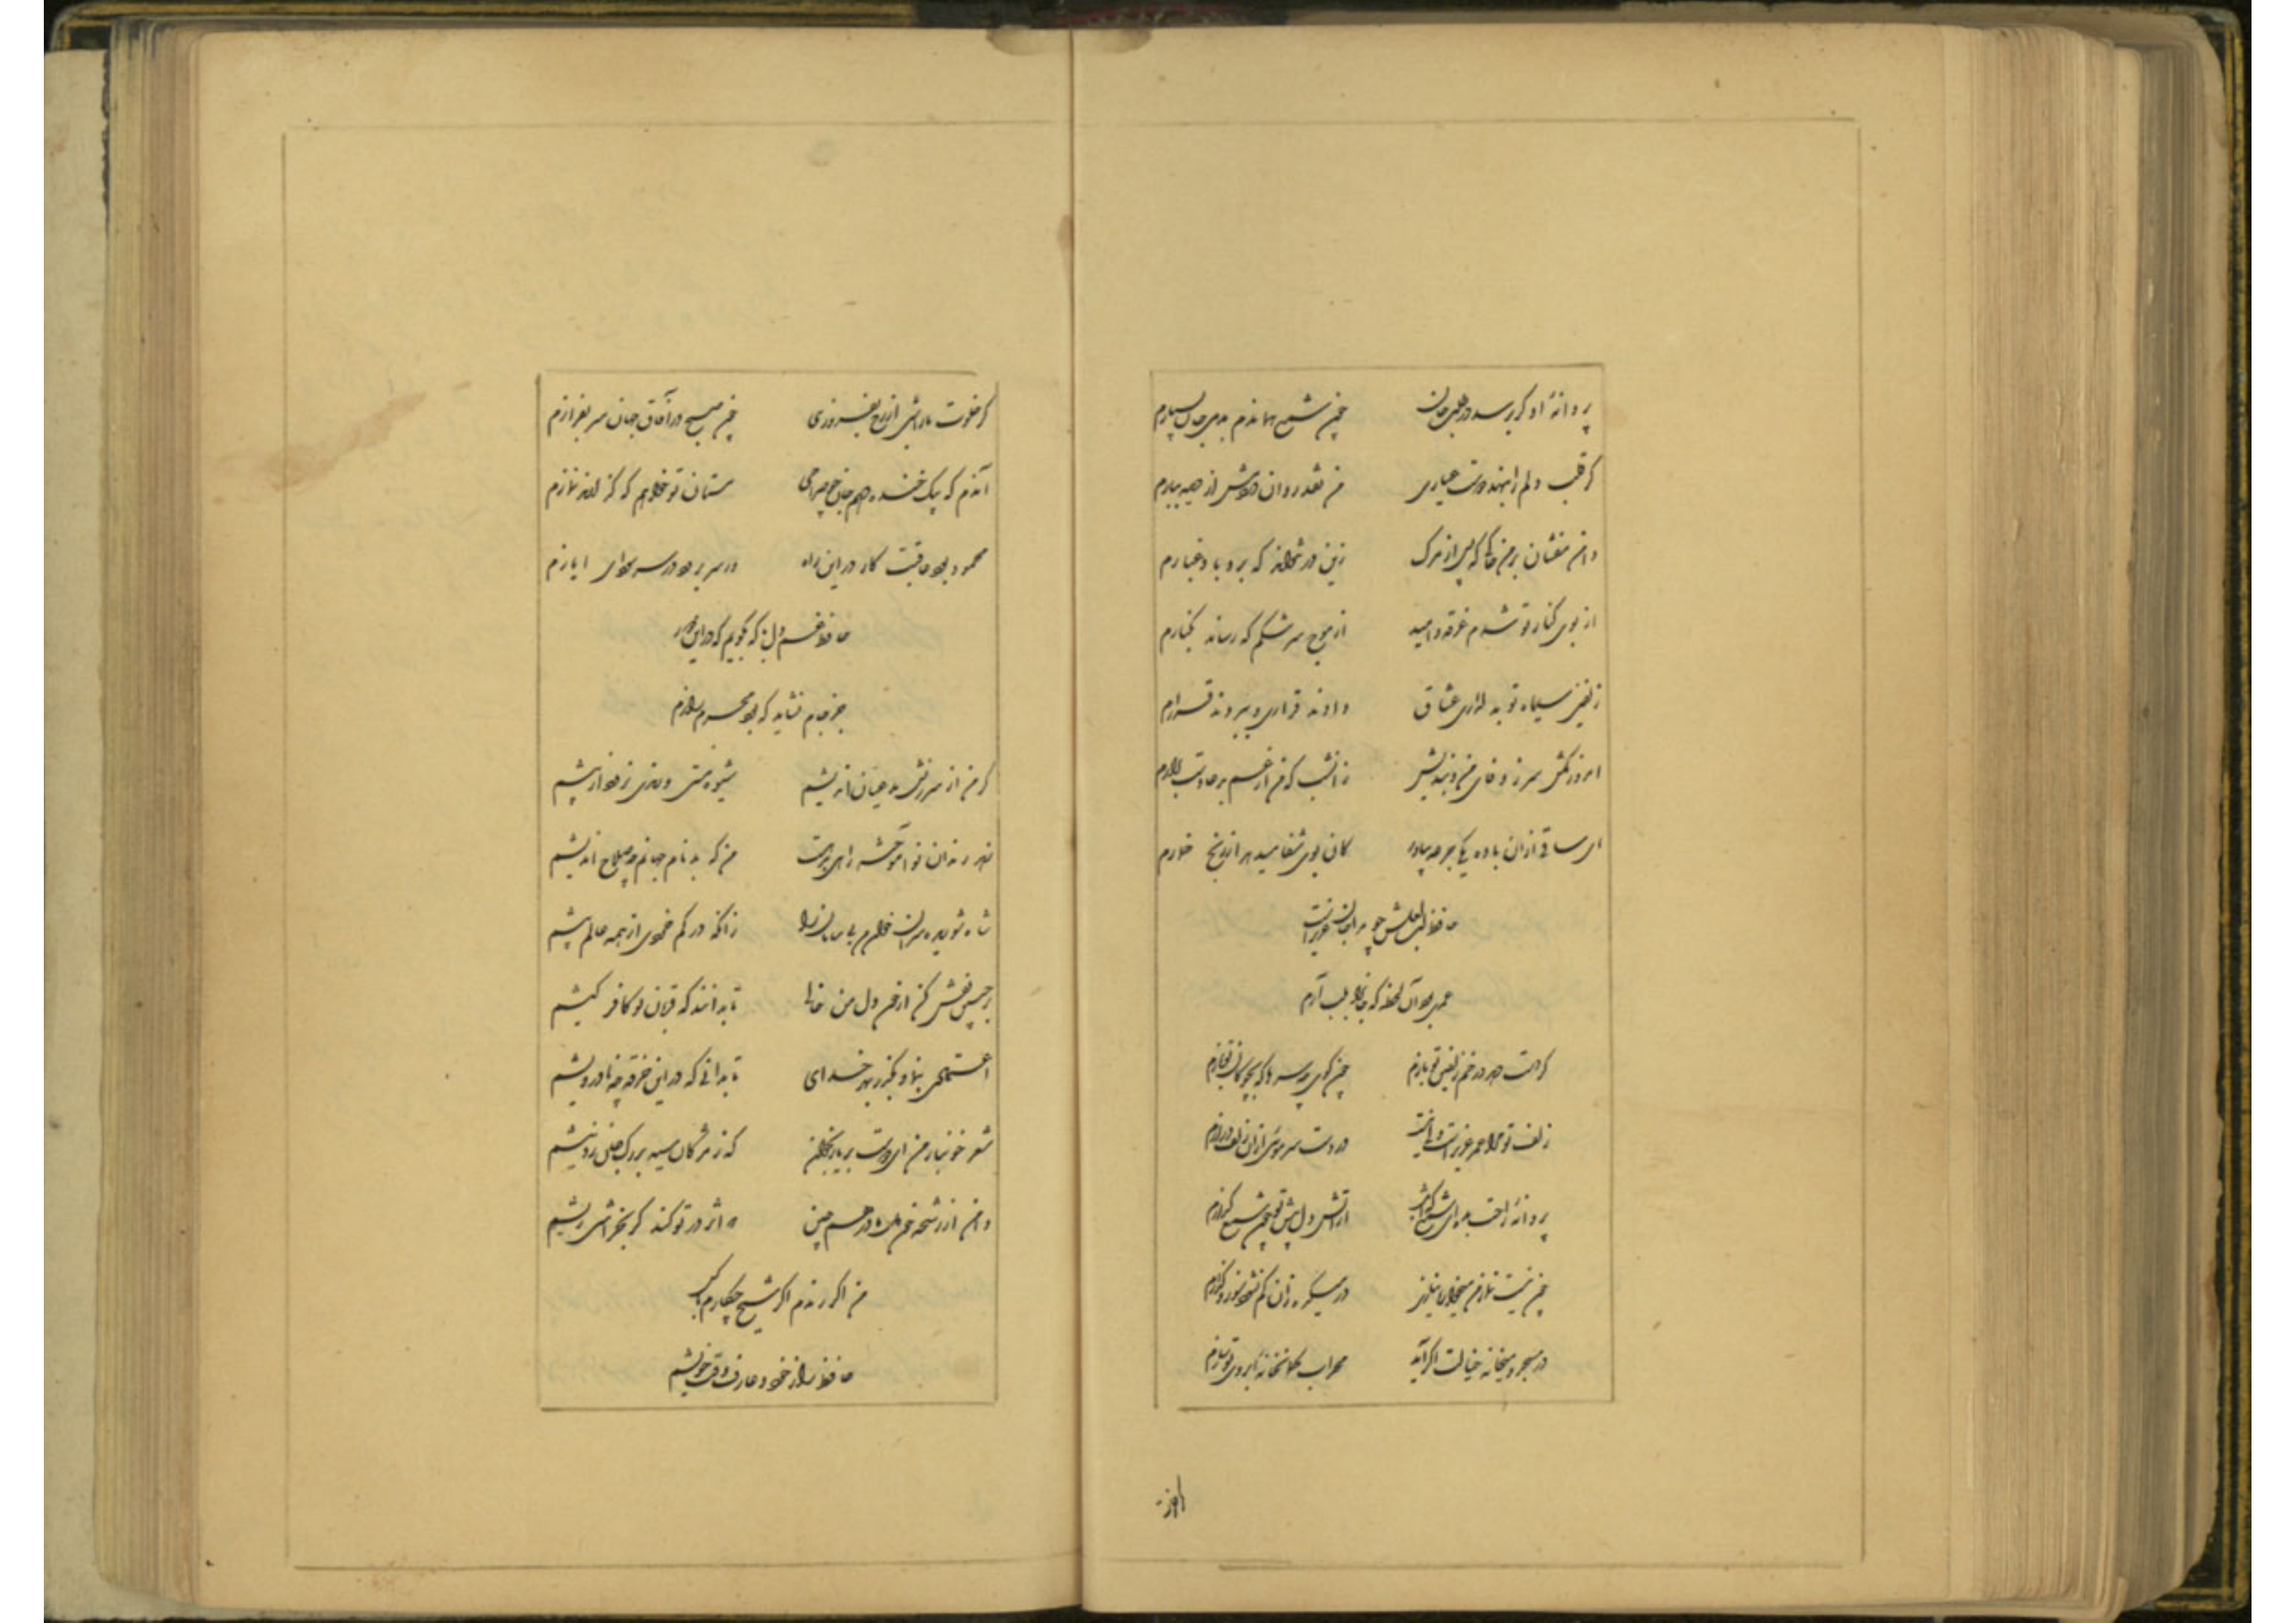 پروانهٔ او گر رسدم در طلب جان چون شمع همان دم بدمی جان بسپارم
گر قلب دلم را ننهد دوست عیاری من نقد روان در دمش از دیده ببارم
دامن مفشان بر من خاکی که پس از مرگ زین در نتواند که برد باد غبارم
از بوی کنار تو شدم غرقه و امید از موج سرشکم که رساند بکنارم
زلفین سیاه تو به دلداری عشاق دادند قراری و ببردند قرارم
امروز مکش سر ز وفای من و بندیش زان شب که من از غم به دعا دست برآرم
ای ساقی از آن باده یکی جرعه بیاور کان بوی شفا میدهد از رنج خمارم
حافظ لب لعلش چو مرا جان عزیزست
عمری بود آن لحظه که جان را به لب آرم
گر دست دهد در خم زلفین تو بازم چون گوی چه سرها که بچوگان تو بازم
زلف تو مرا عمر درازست ولی نیست در دست سر موئی از آن زلف درازم
پروانهٔ راحت بده ای شمع که امشب از آتش دل پیش تو چون شمع گدازم
چون نیست نماز من میخواره نمازی در میکده زان کم نشود سوز و گدازم
در مسجد و میخانه خیالت اگر آید محراب و کمانخانه ز ابروی تو سازم
گر خلوت ما را شبی از رخ بفروزی چون صبح در آفاق جهان سر بفرازم
آندم که بیک خنده دهم جان چو صراحی مستان تو خواهم که گذارند نمازم
محمود بود عاقبت کار در این راه ور سر برود در سر سودای ایازم
حافظ غم دل با که بگویم که در این دور
جز جام نشاید که بود محرم رازم
گر من از سرزنش مدعیان اندیشم شیوهٔ مستی و رندی نرود از پیشم
زهد رندان نوآموخته راهی بدهیست من که بدنام جهانم چه صلاح اندیشم
شاه شوریده سران خوان من بی سامان را زانکه در کم خردی از همه عالم بیشم
بر جبین نقش کن از خون دل من خالی تا بدانند که قربان تو کافر کیشم
اعتمادی بنما و بگذر بهر خدای تا بدانی که در این خرقه چه نادرویشم
شعر خونبار من ای دوست بر یار بخوان که ز مژگان سیه بر رگ جان زد نیشم
دامن از رشحهٔ خون دل ما در هم چین که اثر در تو کند گر بخراشی ریشم
من اگر رندم اگر شیخ چکارم با کس
حافظ راز خود و عارف وقت خویشم